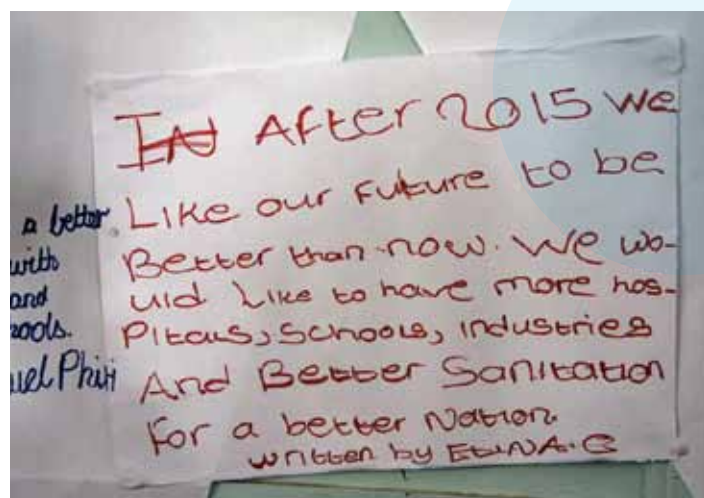 a better
with
and
ools.
uel Phiri
IN After 2015 we
Like our future to be
Better than now. We wo-
uld Like to have more hos-
Pitals, Schools, industries
And Better Sanitation
For a better Nation.
written by EtINA.C